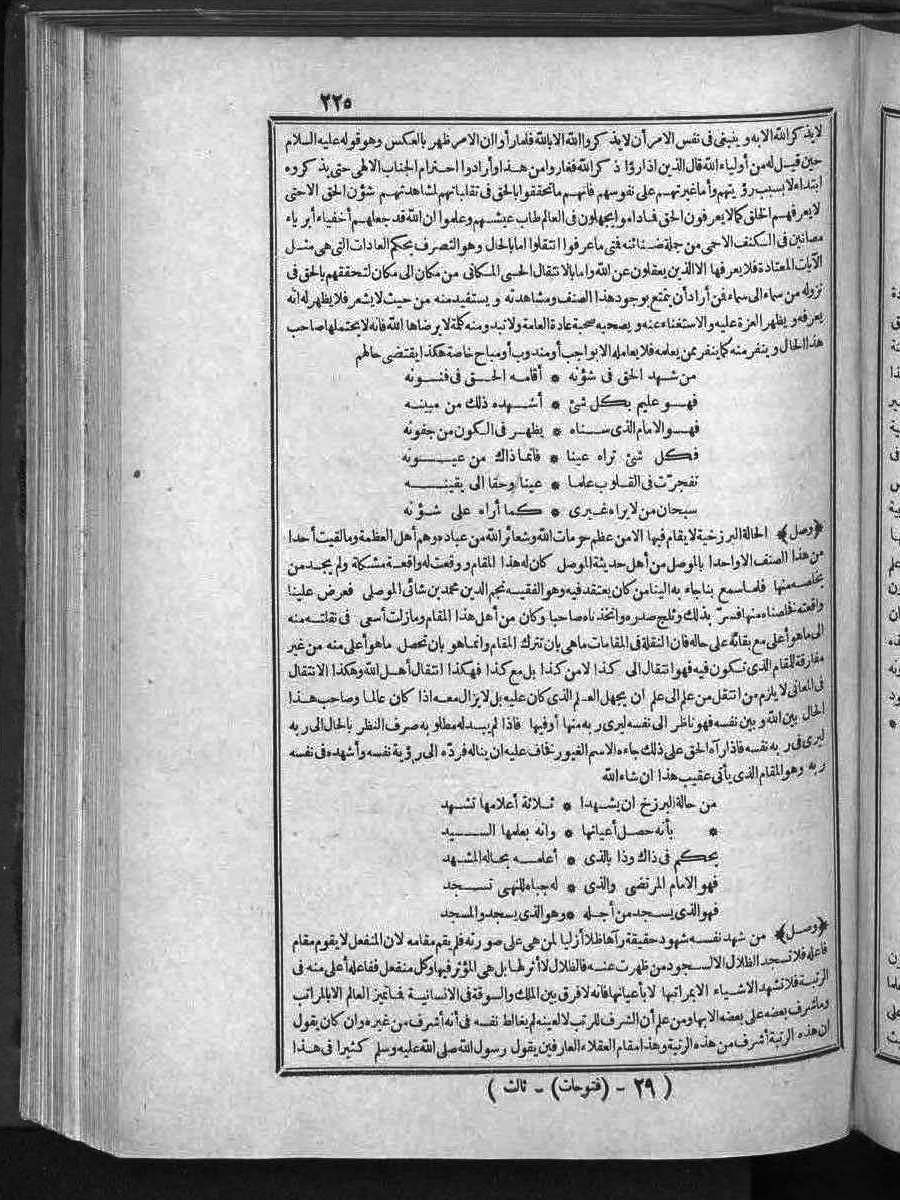 ٢٢٥
لا يذكر الله الا به و ينبغي في نفس الامر أن لا يذكر والله الا بالله فلما رأوا ان الامر ظهر بالعكس وهو قوله عليه السلام
حين قيل له من أولياء الله قال الذين اذا رؤا ذكر الله فغاروا من هذا وأرادوا احترام الجناب الالهي حتى يذكروه
ابتداء لا بسبب رؤيتهم وأما غيرتهم على نفوسهم فانهم ما تحققوا بالحق في تقلباتهم لمشاهدتهم شؤن الحق الاحتى
لا يعرفهم الخلق كما لا يعرفون الحق فداموا يجهلون في العالم طاب عيشهم وعلموا ان الله قد جعلهم أخفياء أبرياء
مصانين في الكنف الاحمى من جملة ضنائنه فتى ما عرفوا انتقلوا اما بالحال وهو التصرف بحكم العادات التي هي مثل
الآيات المعتادة فلا يعرفها الا الذين يعقلون عن الله واما بالانتقال الحسى المكانى من مكان الى مكان لتحققهم بالحق في
نزوله من سماء الى سماء فمن أراد أن يتمتع بوجود هذا الصنف ومشاهدته و يستفيد منه من حيث لا يشعر فلا يظهر له انه
يعرفه و يظهر العزة عليه والاستغناء عنه و يصحبه صحبة عادة العامة ولا تبد ومنه كلمة لا يرضاها الله فانه لا يحتملها صاحب
هذا الحال و ينفر منه كما ينفر ممن يعامله فلا يعامله الا بواجب أو مندوب أو مباح خاصة هكذا يقتضى حالهم
من شهد الحق في شؤنه * أقامه الحق في فنونه
فهو عليم بكل شئ * أشهده ذلك من مبينه
فهو الامام الذى سناه * يظهر في الكون من جفونه
فكل شئ تراه عينا * فانما ذاك من عيونه
تفجرت في القلوب علما * عينا وحقا الى يقينه
سبحان من لا يراه غيرى * كما أراه على شؤنه
﴿وصل﴾ الحالة البرزخية لا يقام فيها الا من عظم حرمات الله وشعائر الله من عباده وهم أهل العظمة وما لقيت أحدا
من هذا الصنف الا واحدا بالموصل من أهل حديثة الموصل كان له هذا المقام ووقعت له واقعة مشكلة ولم يجد من
يخلصه منها فلما سمع بنا جاء به الينا من كان يعتقد فيه وهو الفقيه نجم الدين محمد بن شائى الموصلى فعرض علينا
واقعته فخلصناه منها فسرّ بذلك وثلج صدره واتخذناه صاحبا وكان من أهل هذا المقام وما زلت أسعى في نقلته منه
الى ما هو أعلى مع بقائه على حاله فان النقلة في المقامات ما هي بان تترك المقام وانما هو بان تحصل ما هو أعلى منه من غير
مفارقة للمقام الذى تكون فيه فهو انتقال الى كذا لا من كذا بل مع كذا فهكذا انتقال أهل الله وهكذا الانتقال
في المعانى لا يلزم من انتقل من علم الى علم ان يجهل العلم الذى كان عليه بل لا يزال معه اذا كان عالما وصاحب هذا
الحال بين الله و بين نفسه فهو ناظر الى نفسه ليرى ر به منها أو فيها فاذا لم يبد له مطلوبه صرف النظر بالحال الى ر به
ليرى في ر به نفسه فاذا رآه الحق على ذلك جاءه الاسم الغيور يخاف عليه ان يناله فردّه الى رؤية نفسه وأشهده في نفسه
ر به وهو المقام الذى يأتى عقيب هذا ان شاء الله
من حالة البرزخ ان يشهدا * ثلاثة أعلامها تشهد
* بأنه حصل أعيانها * وانه بعلمها السيد
بحكم في ذاك وذا بالذى * أعلمه بحاله المشهد
فهو الامام المرتضى والذى * له جباه للنهى تسجد
فهو الذى يسجد من أجله * وهو الذى يسجد والمسجد
﴿وصل﴾ من شهد نفسه شهود حقيقة رآها ظلا أزليا لمن هي على صورته فلم يقم مقامه لان المنفعل لا يقوم مقام
فاعله فلا تسجد الظلال الا لسجود من ظهرت عنه فالظلال لا أثر لها بل هي المؤثر فيها وكل منفعل ففاعله أعلى منه في
الرتبة فلا تشهد الاشياء الا بمراتبها لا بأعيانها فانه لا فرق بين الملك والسوقة في الانسانية فما تميز العالم الا بالمراتب
وما شرف بعضه على بعضه الا بها ومن علم أن الشرف للرتب لا لعينه لم يغالط نفسه في أنه أشرف من غيره وان كان يقول
ان هذه الرتبة أشرف من هذه الرتبة وهذا مقام العقلاء العارفين يقول رسول الله صلى الله عليه وسلم كثيرا في هذا
( ٢٩ - (فتوحات) - ثالث )